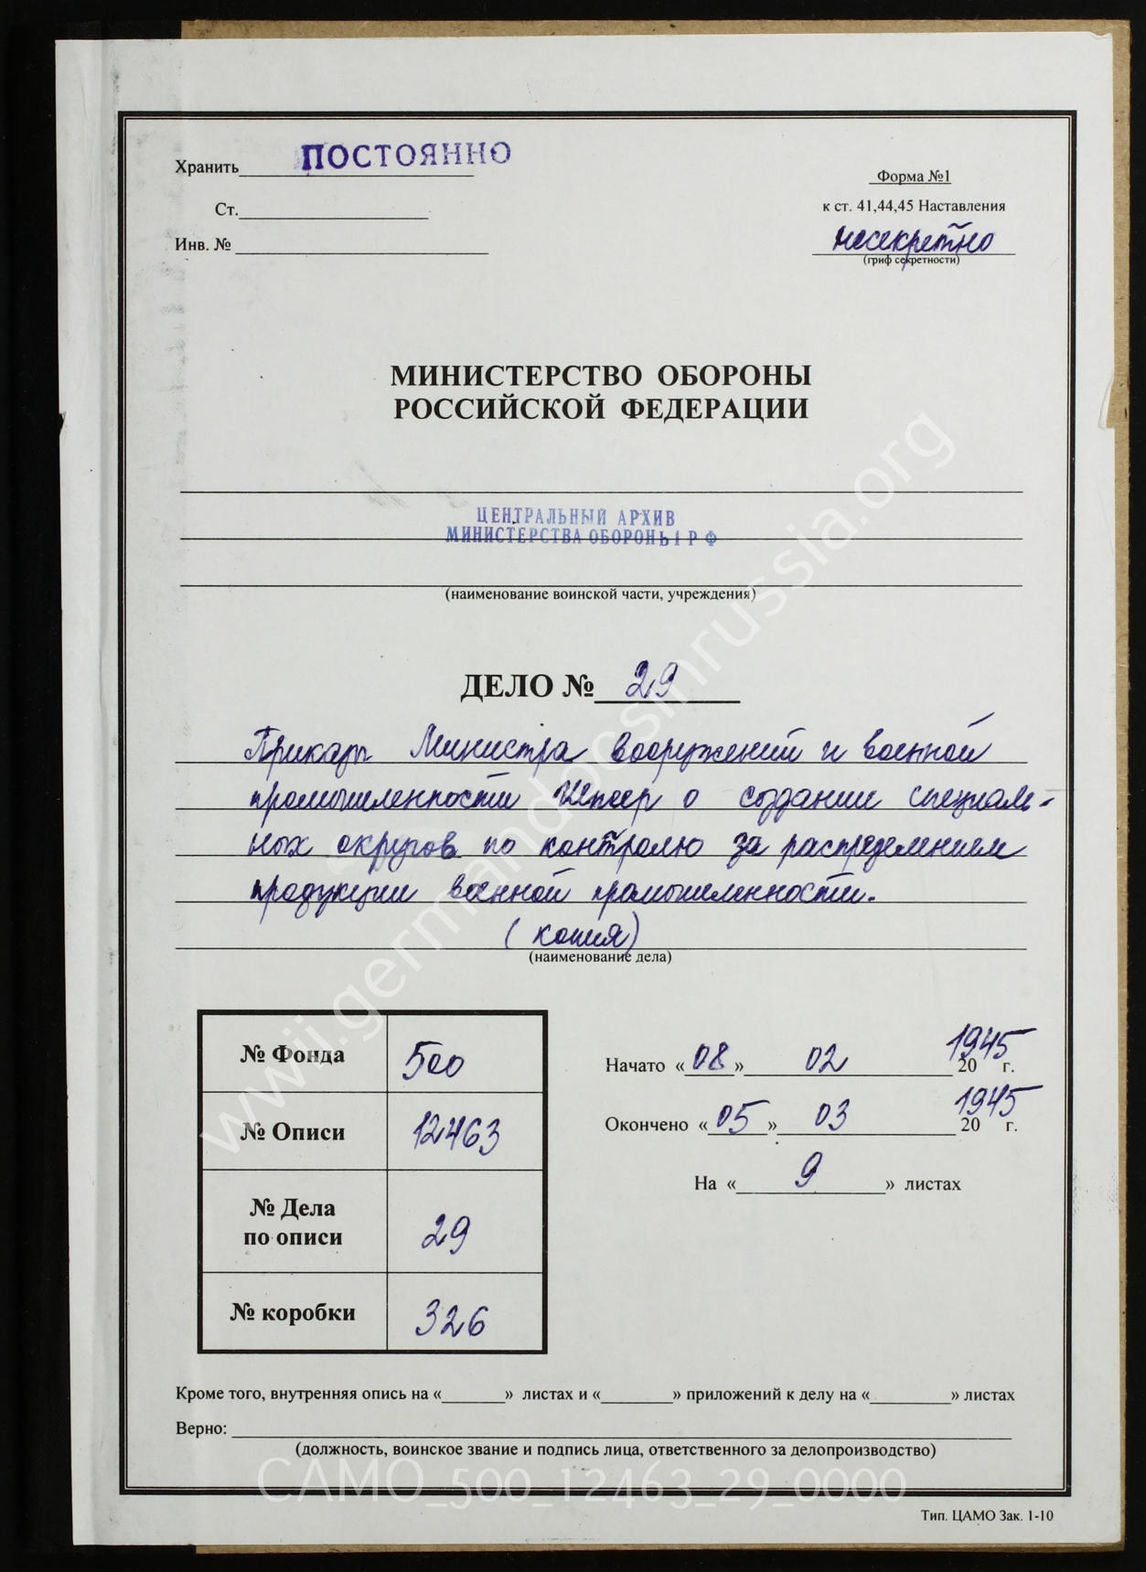 Хранить ПОСТОЯННО
Форма №1
Ст.
к ст. 41,44,45 Наставления
Инв. №
несекретно
(гриф секретности)
МИНИСТЕРСТВО ОБОРОНЫ
РОССИЙСКОЙ ФЕДЕРАЦИИ
ЦЕНТРАЛЬНЫЙ АРХИВ
МИНИСТЕРСТВА ОБОРОНЫ РФ
(наименование воинской части, учреждения)
ДЕЛО № 29
Приказы Министра вооружений и военной
промышленности Шпеер о создании специаль-
ных округов по контролю за распределением
продукции военной промышленности.
(копия)
(наименование дела)
№ Фонда 500
№ Описи 12463
№ Дела
по описи 29
№ коробки 326
Начато «08» 02 1945 20 г.
Окончено «05» 03 1945 20 г.
На « 9 » листах
Кроме того, внутренняя опись на « » листах и « » приложений к делу на « » листах
Верно:
(должность, воинское звание и подпись лица, ответственного за делопроизводство)
CAMO_500_12463_29_0000
Тип. ЦАМО Зак. 1-10
www.germandocsinrussia.org